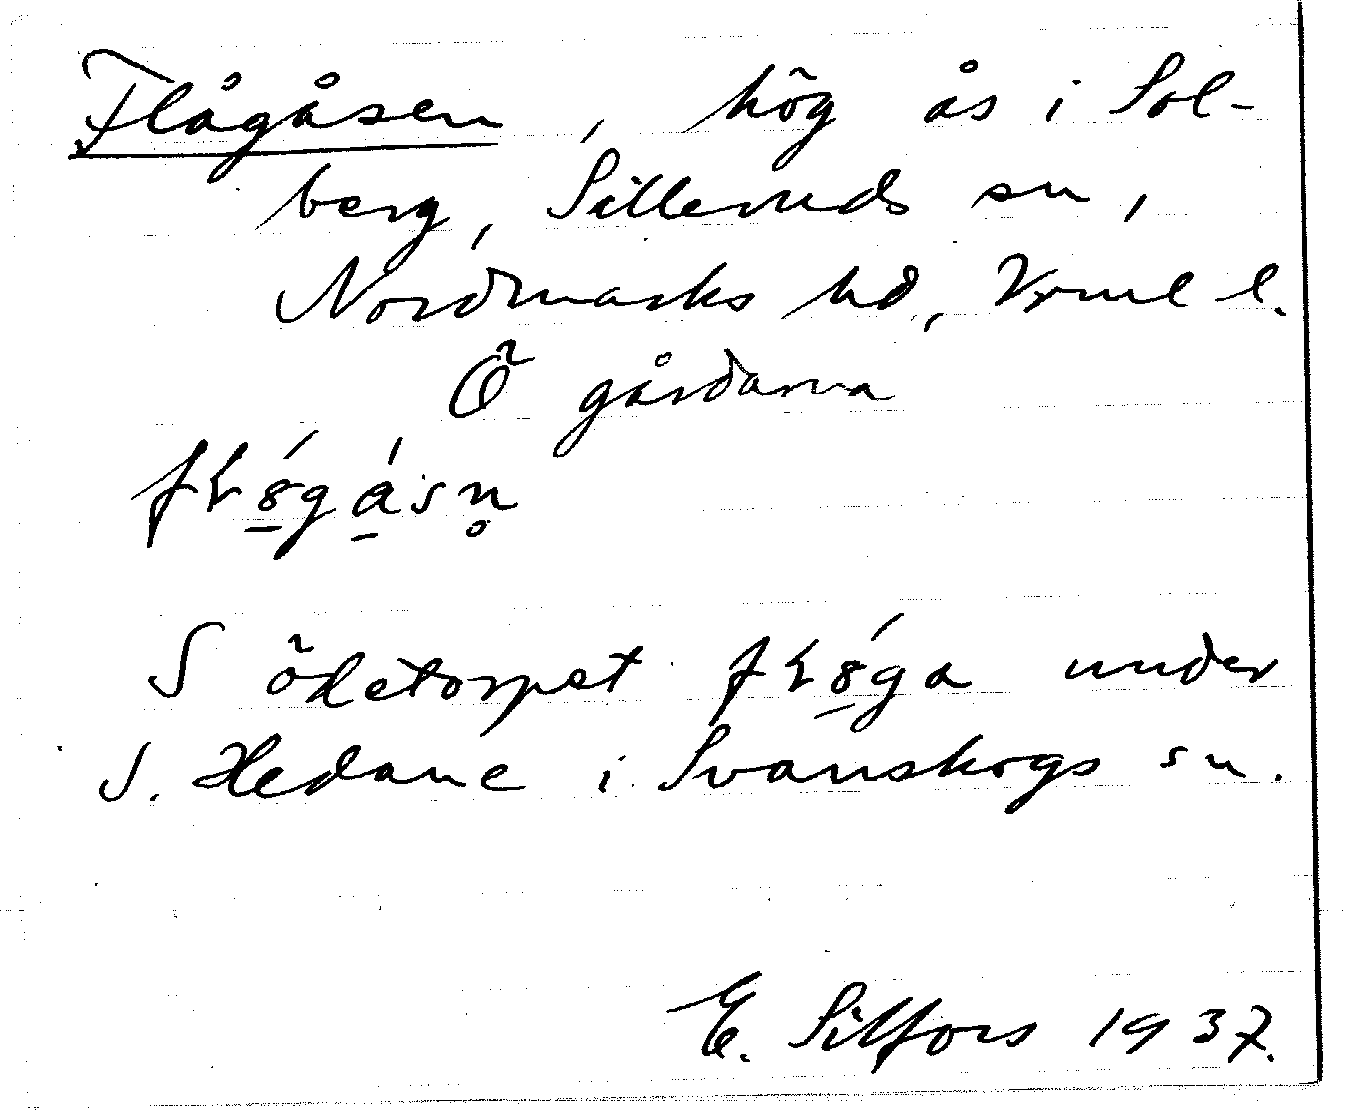 Flågåsen, hög ås i Sol-
berg, Silleruds sn,
Nordmarks hd, Vrml l.
Ö gårdarna
S ödetorpet under
S. Hedane i Svanskogs sn.
E. Silfors 1937.